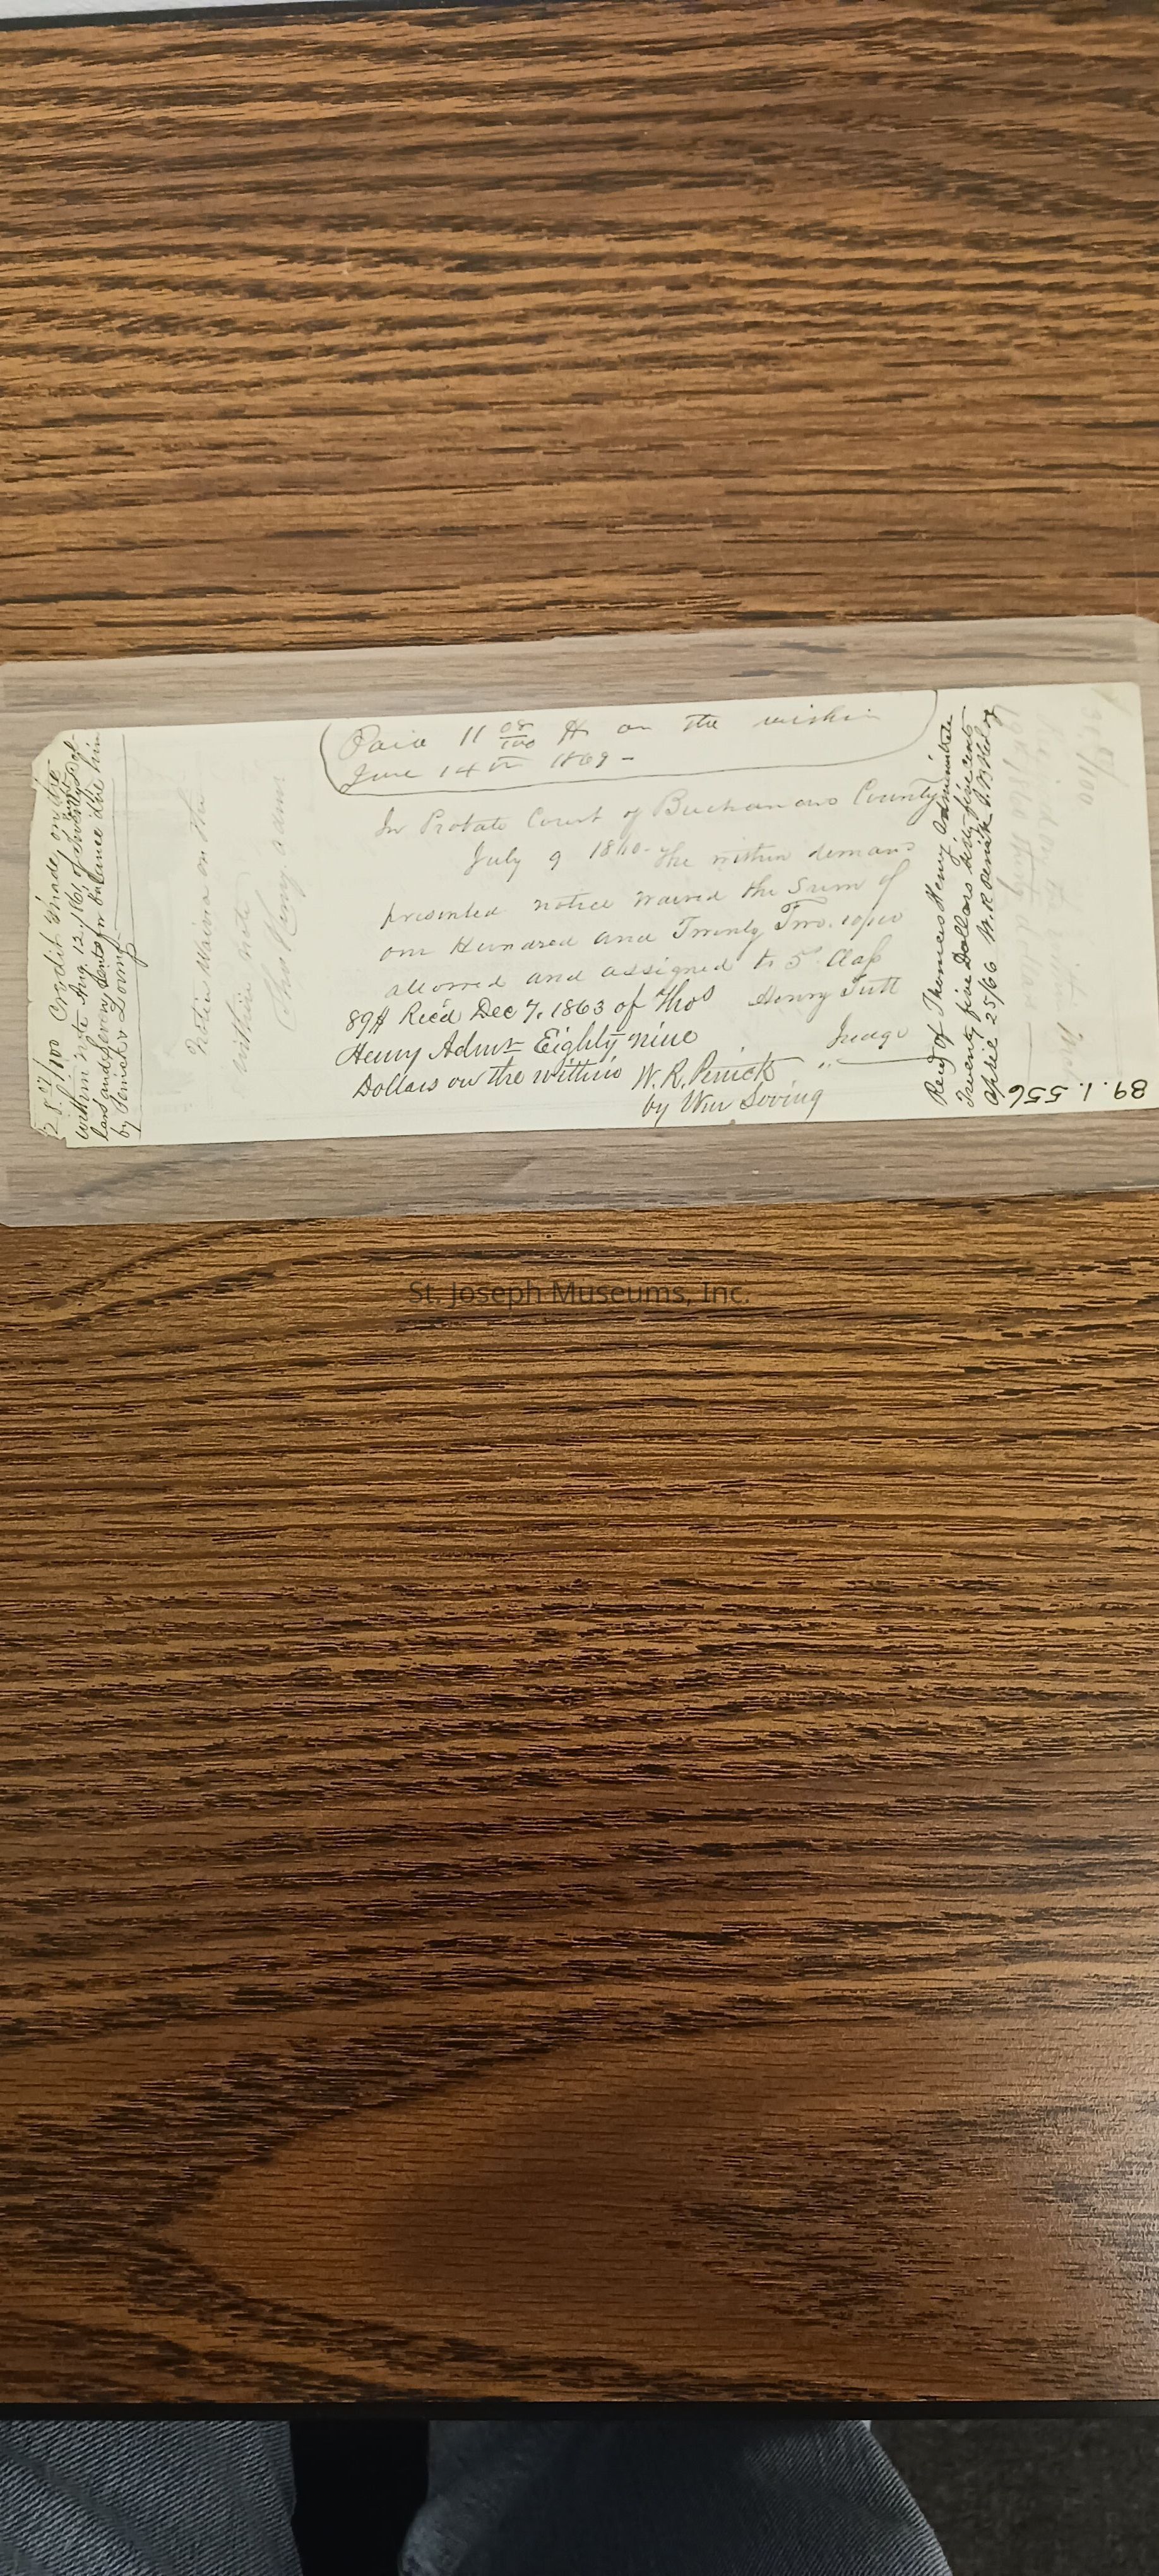 28.07/100 Credit Made, on the
within note Aug. 12, 1861 of Twenty Eight Dol-
lars and Seven cents for balance due him
by Penick & Loving
Notice Waived on the
within note
Thos Henry admr
Paid 11 08/100 $ on the within
June 14th 1869 -
In Probate Court of Buchanan County
July 9 1860. The within demand
presented notice waived the Sum of
one Hundred and Twenty Two. 10/100
allowed and assigned to 5th Class
Henry Tutt
Judge
89$ Recd Dec 7. 1863 of Thos
Henry Admr Eighty nine
Dollars on the within
W. R. Penick
by Wm Loving
Recd of Thomas Henry Administrator
Twenty five Dollars sixty five cents
April 25/66 W. R. Penick
89.1.556
St. Joseph Museums, Inc.